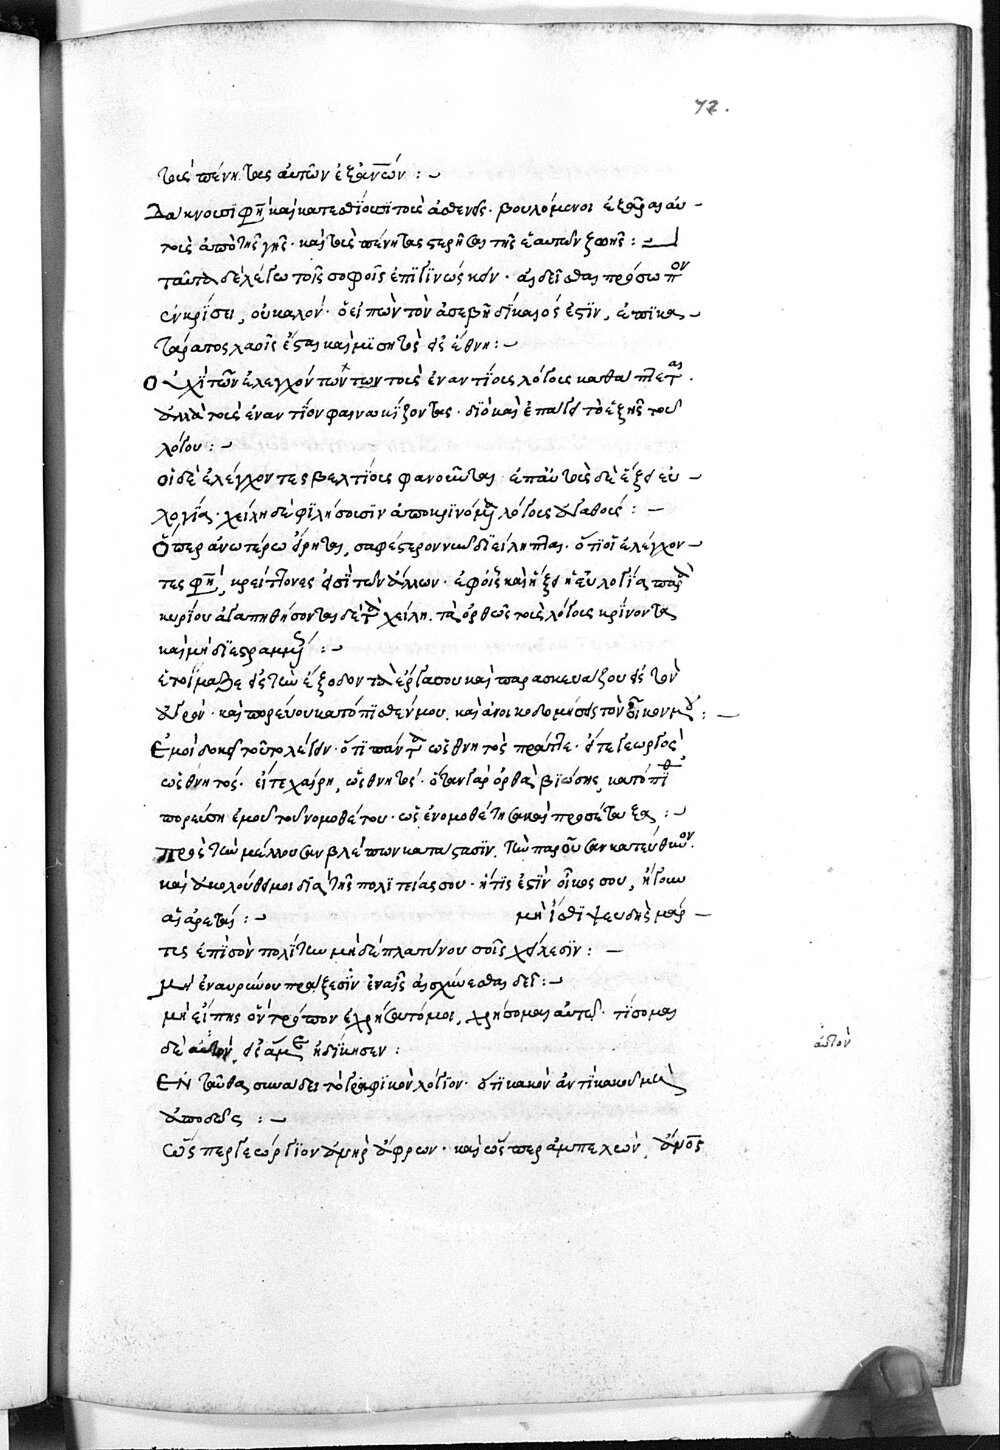 72.
τοὺς πένητας αὐτῶν ἐξ ἀνθρώπων :
Δάκνουσι φησὶ καὶ κατεσθίουσι τοὺς ἀσθενεῖς · βουλόμενοι ἐξᾶραι αὐ
τοὺς ἀπὸ τῆς γῆς · καὶ τοὺς πένητας στερῆσαι τῆς ἑαυτῶν ζωῆς :
ταῦτα δὲ λέγω τοῖς σοφοῖς ἐπιγινώσκειν · αἰδεῖσθαι πρόσωπον
ἐν κρίσει, οὐ καλόν · ὁ εἰπὼν τὸν ἀσεβῆ δίκαιός ἐστιν, ἐπικα
τάρατος λαοῖς ἔσται καὶ μισητὸς εἰς ἔθνη :
Οὐχὶ τῶν ἐλεγχόντων τοὺς ἐναντίους λόγους καθάπτεται ·
ἀλλὰ τοὺς ἐναντίον φαινακίζοντας · διὸ καὶ ἐπάγει τὸ ἑξῆς τοῦ
λόγου :
οἱ δὲ ἐλέγχοντες βελτίους φανοῦνται · ἐπ' αὐτοὺς δὲ ἥξει εὐ
λογία · χείλη δὲ φιλήσουσιν ἀποκρινόμενα λόγους ἀγαθούς :
Ὅπερ ἀνωτέρω εἴρηται, σαφέστερον νῦν διείληπται · ὅτι οἱ ἐλέγχον
τες φησὶ, κρείττονές εἰσι τῶν ἄλλων · ἐφ' οἷς καὶ ἥξει ἡ εὐλογία παρὰ
κυρίου ἀγαπηθήσονται δὲ τὰ χείλη τὰ ὀρθῶς τοὺς λόγους κρίνοντα
καὶ μὴ διεστραμμένως :
ἑτοίμαζε εἰς τὴν ἔξοδον τὰ ἔργα σου καὶ παρασκευάζου εἰς τὸν
ἀγρόν · καὶ πορεύου κατόπισθέν μου, καὶ ἀνοικοδομήσεις τὸν οἶκον μου :
Ἐμοὶ δοκεῖ τοῦτο λέγειν · ὅτι πάντα ὡς θνητὸς πράττε · εἴτε γεωργεῖς
ὡς θνητός · εἴτε χαίρῃ, ὡς θνητός · ὅταν γὰρ ὀρθὰ βιώσῃς, κατόπισθεν
πορεύσῃ ἐμοῦ τοῦ νομοθέτου · ὡς ἐνομοθέτησα καὶ προσέταξα :
πρὸς τὴν μέλλουσαν βλέπων κατάστασιν, τὴν παροῦσαν κατεύθυνον ·
καὶ ἀκολούθει μοι διὰ τῆς πολιτείας σου · ἥτις ἐστὶν οἶκος σου, ἤγουν
αἱ ἀρεταί : μὴ ἴσθι ψευδὴς μάρ
τυς ἐπὶ σὸν πολίτην μηδὲ πλατύνου σοῖς χείλεσιν :
μὴ ἐναβρύνου πράξεσιν ἐν αἷς αἰσχύνεσθαι δεῖ :
μὴ εἴπῃς ὃν τρόπον ἐχρήσατό μοι, χρήσομαι αὐτῷ · τίσομαι
δὲ αὐτὸν, εἰς ἅ με ἠδίκησεν :
αὐτὸν
Ἐνταῦθα συνᾴδει τὸ γραφικὸν λόγιον · ὅτι κακὸν ἀντὶ κακοῦ μὴ
ἀποδῷς :
ὥσπερ γεώργιον ἀνὴρ ἄφρων · καὶ ὥσπερ ἀμπελὼν, ἄνος